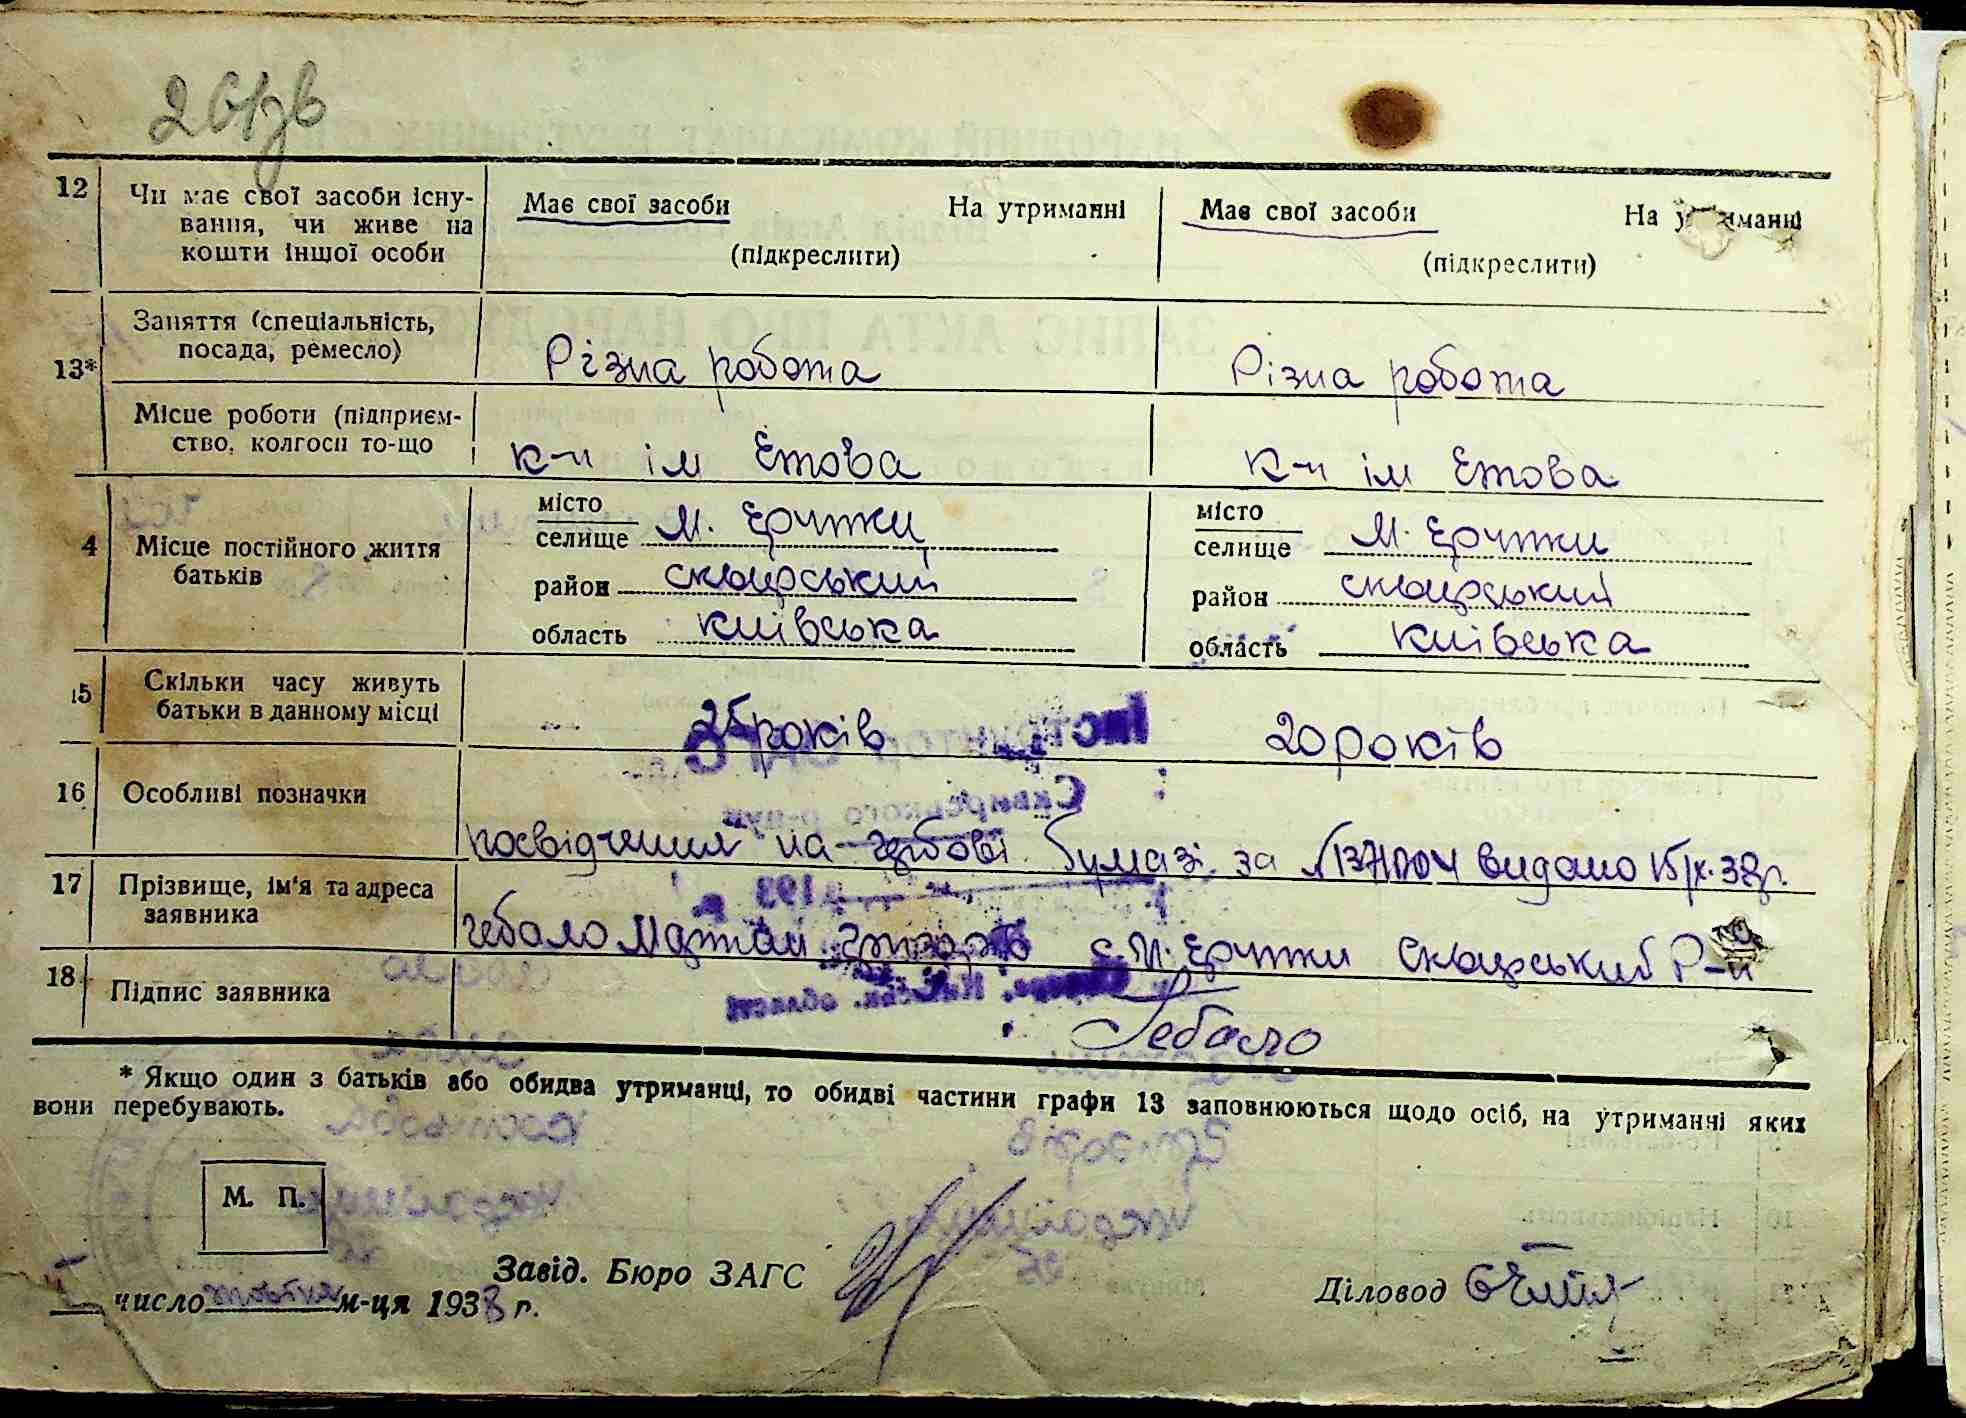 261зв
12 Чи має свої засоби існу- Має свої засоби На утриманні Має свої засоби На утриманні
вання, чи живе на
кошти іншої особи (підкреслити) (підкреслити)
Заняття (спеціальність,
13* посада, ремесло) Різна робота Різна робота
Місце роботи (підприєм-
ство, колгосп то-що к-п ім Етова к-п ім Етова
місто місто
4 Місце постійного життя селище М. Єрчики селище М. Єрчики
батьків район сквирський район сквирський
область київська область київська
15 Скільки часу живуть
батьки в данному місці 25 років 20 років
16 Особливі позначки
посвідчення на гербові бумазі за видано 15/х. 38р.
17 Прізвище, ім'я та адреса
заявника гебало с. М. Єрчики Сквирський Р-н
18 Підпис заявника Гебало
* Якщо один з батьків або обидва утриманці, то обидві частини графи 13 заповнюються щодо осіб, на утриманчі яких
вони перебувають.
М. П.
Завід. Бюро ЗАГС Діловод
число жовтня м-ця 1938 г.
Інструктор ЗАГС
Сквирського р-ну
193
Київськ. області